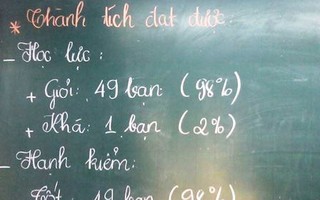 * Thành tích đạt được:
- Học lực:
+ Giỏi: 49 bạn (98%)
+ Khá: 1 bạn (2%)
- Hạnh kiểm:
+ Tốt: 49 bạn (98%)